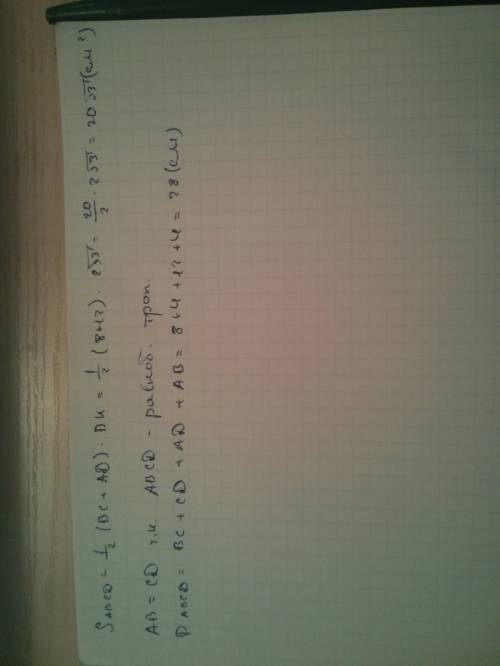 S ABCD = 1/2 (BC + AD) · BK = 1/2 (8+12) · 2√3 = 20/2 · 2√3 = 20√3 (см²)
AB = CD т.к. ABCD - равноб. трап.
P ABCD = BC + CD + AD + AB = 8+4+12+4 = 28 (см)